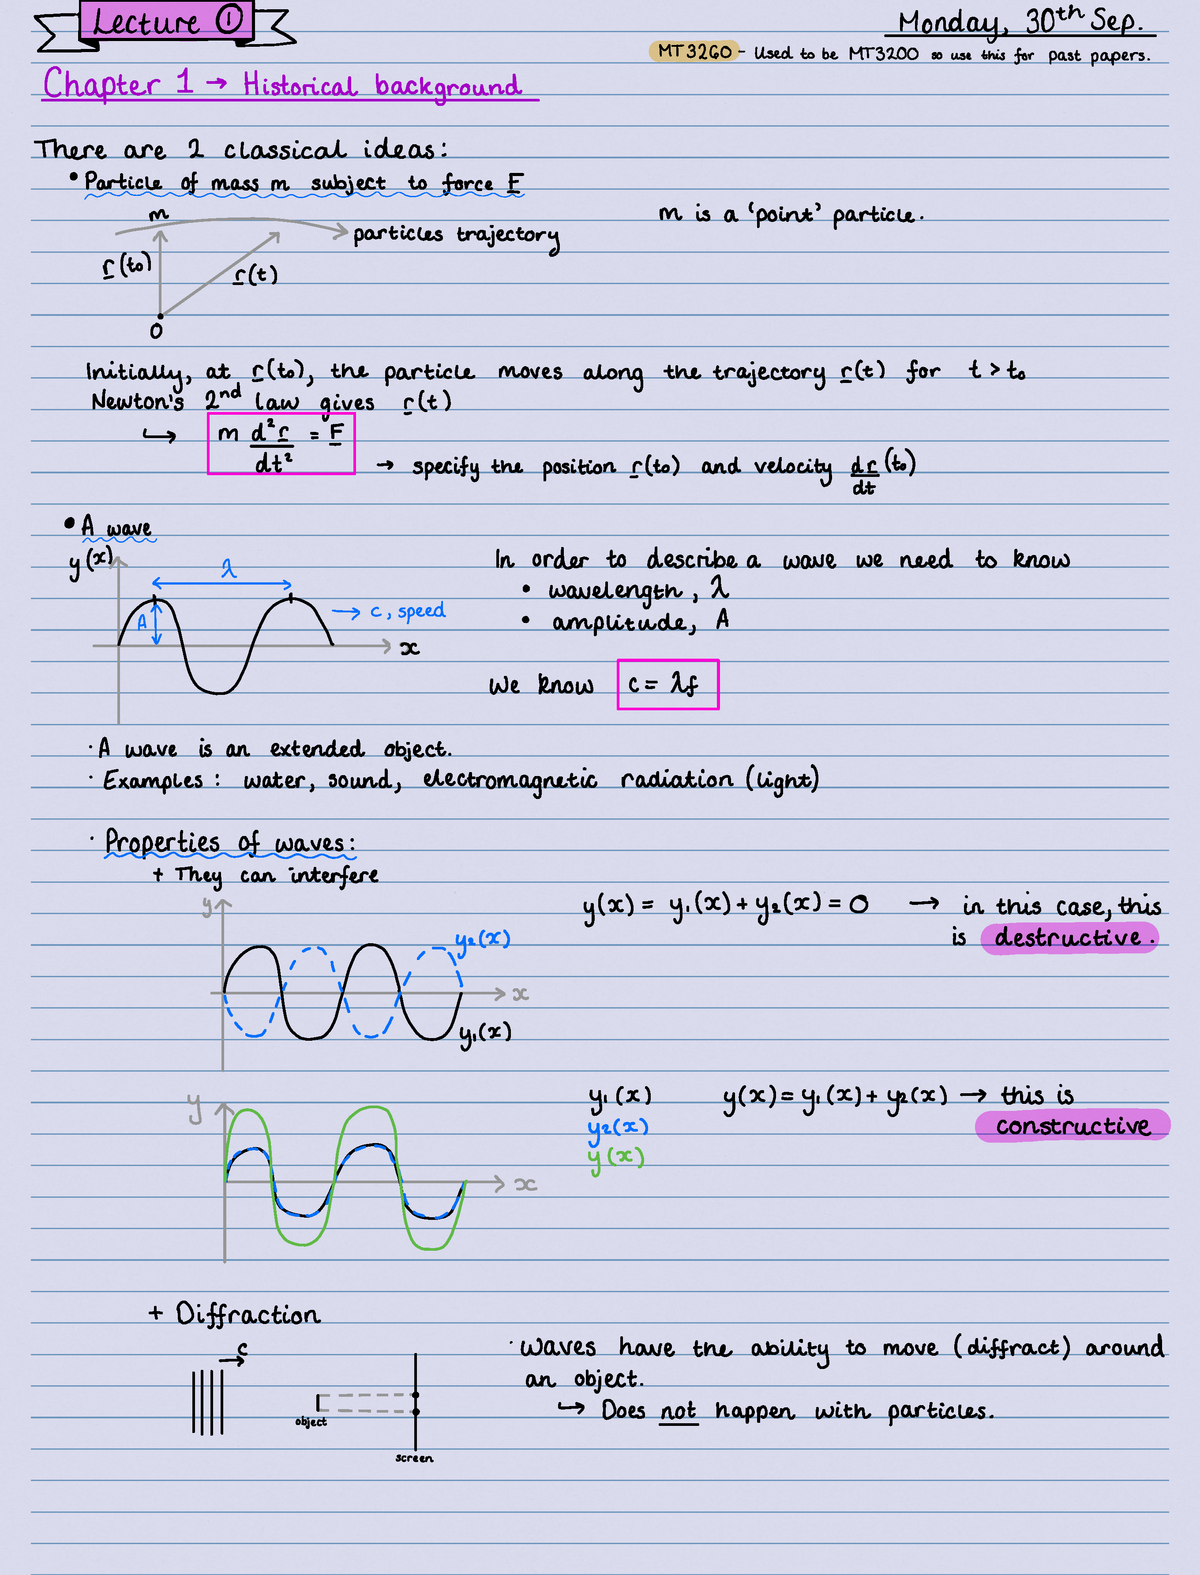 Lecture ①
Monday, 30th Sep.
MT3260 - Used to be MT3200 so use this for past papers.
Chapter 1 → Historical background
There are 2 classical ideas:
• Particle of mass m subject to force F
m
m is a 'point' particle.
particles trajectory
r(t₀)
r(t)
O
Initially, at r(t₀), the particle moves along the trajectory r(t) for t > t₀
Newton's 2nd law gives r(t)
↳ m d²r/dt² = F
→ specify the position r(t₀) and velocity dr/dt (t₀)
• A wave
y(x)
λ
A
→ c, speed
x
In order to describe a wave we need to know
• wavelength, λ
• amplitude, A
We know c = λf
· A wave is an extended object.
· Examples: water, sound, electromagnetic radiation (light)
· Properties of waves:
+ They can interfere
y
y₂(x)
x
y₁(x)
y(x) = y₁(x) + y₂(x) = 0 → in this case, this
is destructive.
y
x
y₁(x)
y₂(x)
y(x)
y(x) = y₁(x) + y₂(x) → this is
constructive
+ Diffraction
c
object
screen
· Waves have the ability to move (diffract) around
an object.
↳ Does not happen with particles.